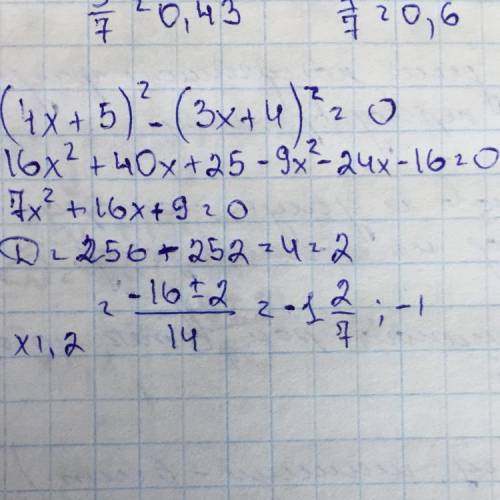 3/7 = 0,43 7/7 = 0,6
(4x + 5)² - (3x + 4)² = 0
16x² + 40x + 25 - 9x² - 24x - 16 = 0
7x² + 16x + 9 = 0
D = 256 - 252 = 4 = 2
x1,2 = -16 ± 2 / 14 = -1 2/7 ; -1